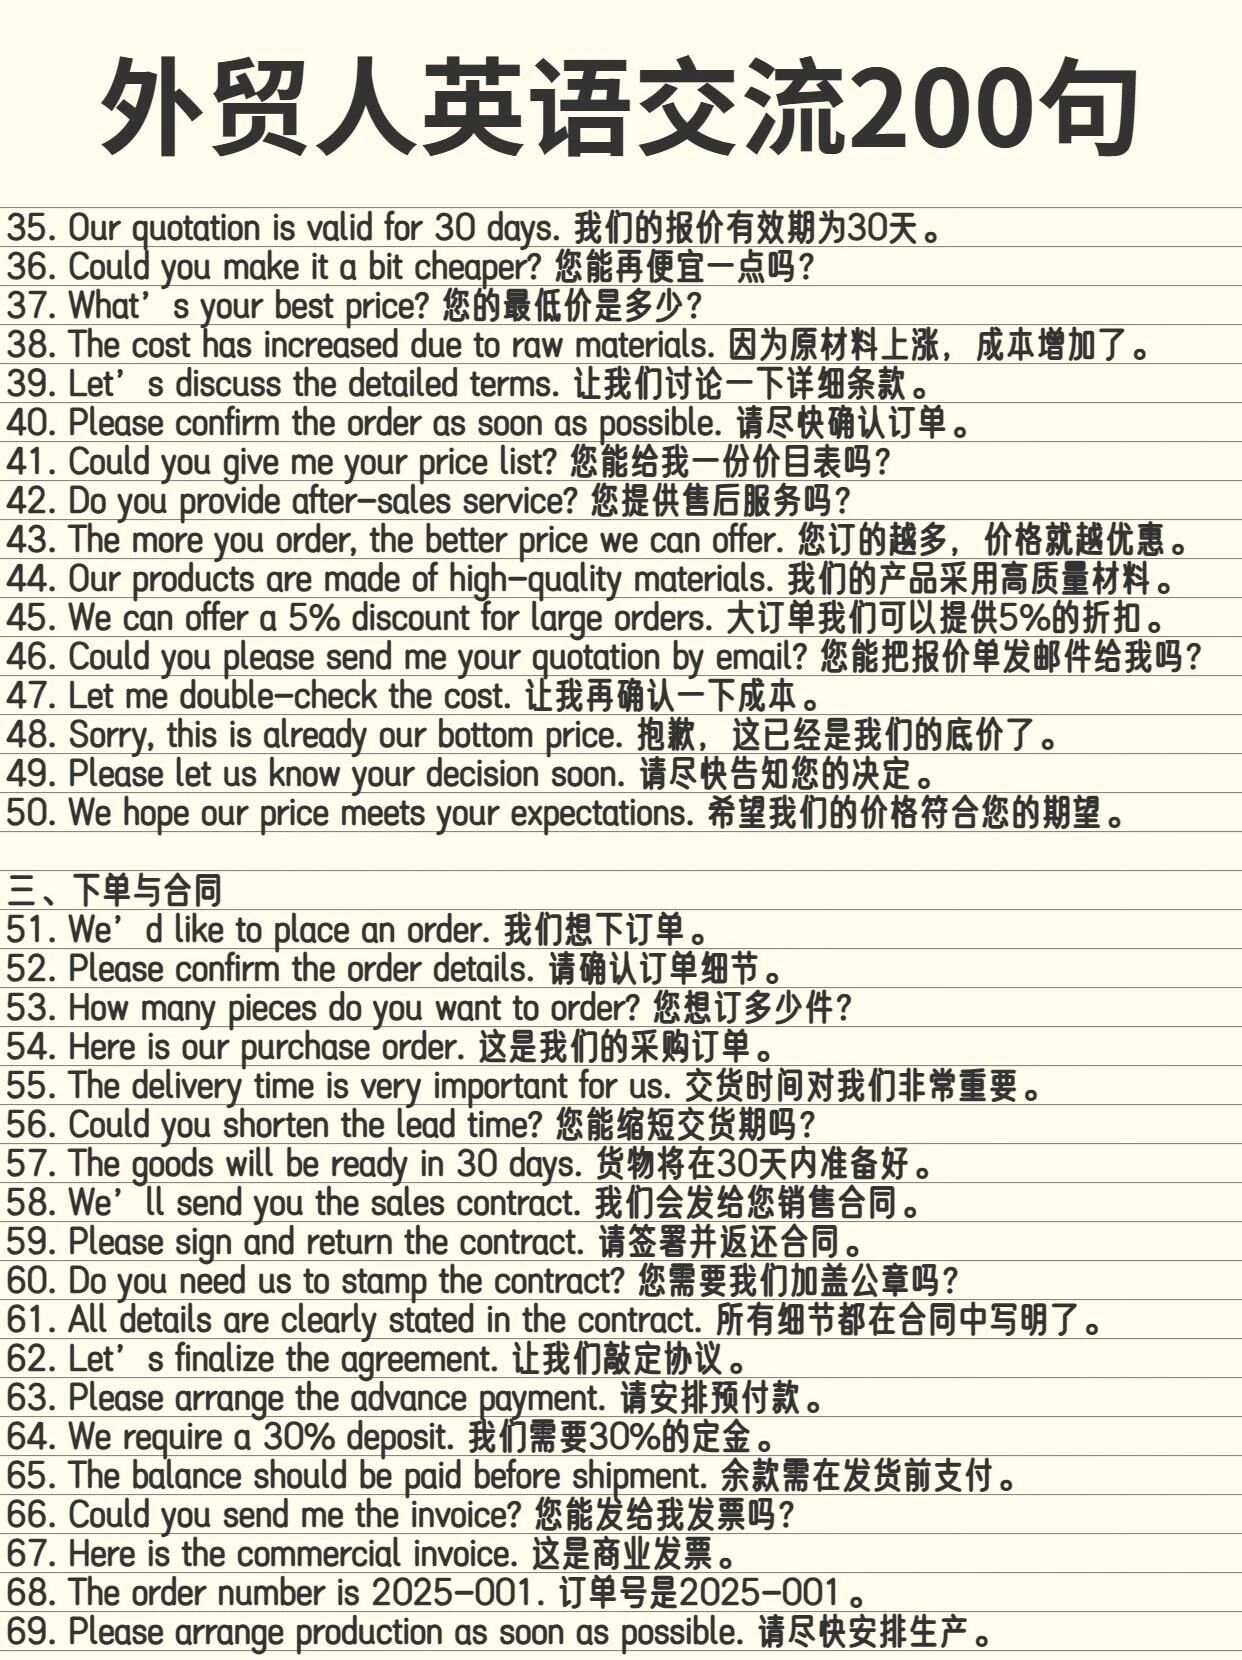 外贸人英语交流200句
35. Our quotation is valid for 30 days. 我们的报价有效期为30天。
36. Could you make it a bit cheaper? 您能再便宜一点吗?
37. What’s your best price? 您的最低价是多少?
38. The cost has increased due to raw materials. 因为原材料上涨，成本增加了。
39. Let’s discuss the detailed terms. 让我们讨论一下详细条款。
40. Please confirm the order as soon as possible. 请尽快确认订单。
41. Could you give me your price list? 您能给我一份价目表吗?
42. Do you provide after-sales service? 您提供售后服务吗?
43. The more you order, the better price we can offer. 您订的越多，价格就越优惠。
44. Our products are made of high-quality materials. 我们的产品采用高质量材料。
45. We can offer a 5% discount for large orders. 大订单我们可以提供5%的折扣。
46. Could you please send me your quotation by email? 您能把报价单发邮件给我吗?
47. Let me double-check the cost. 让我再确认一下成本。
48. Sorry, this is already our bottom price. 抱歉，这已经是我们的底价了。
49. Please let us know your decision soon. 请尽快告知您的决定。
50. We hope our price meets your expectations. 希望我们的价格符合您的期望。
三、下单与合同
51. We’d like to place an order. 我们想下订单。
52. Please confirm the order details. 请确认订单细节。
53. How many pieces do you want to order? 您想订多少件?
54. Here is our purchase order. 这是我们的采购订单。
55. The delivery time is very important for us. 交货时间对我们非常重要。
56. Could you shorten the lead time? 您能缩短交货期吗?
57. The goods will be ready in 30 days. 货物将在30天内准备好。
58. We’ll send you the sales contract. 我们会发给您销售合同。
59. Please sign and return the contract. 请签署并返还合同。
60. Do you need us to stamp the contract? 您需要我们加盖公章吗?
61. All details are clearly stated in the contract. 所有细节都在合同中写明了。
62. Let’s finalize the agreement. 让我们敲定协议。
63. Please arrange the advance payment. 请安排预付款。
64. We require a 30% deposit. 我们需要30%的定金。
65. The balance should be paid before shipment. 余款需在发货前支付。
66. Could you send me the invoice? 您能发给我发票吗?
67. Here is the commercial invoice. 这是商业发票。
68. The order number is 2025-001. 订单号是2025-001。
69. Please arrange production as soon as possible. 请尽快安排生产。